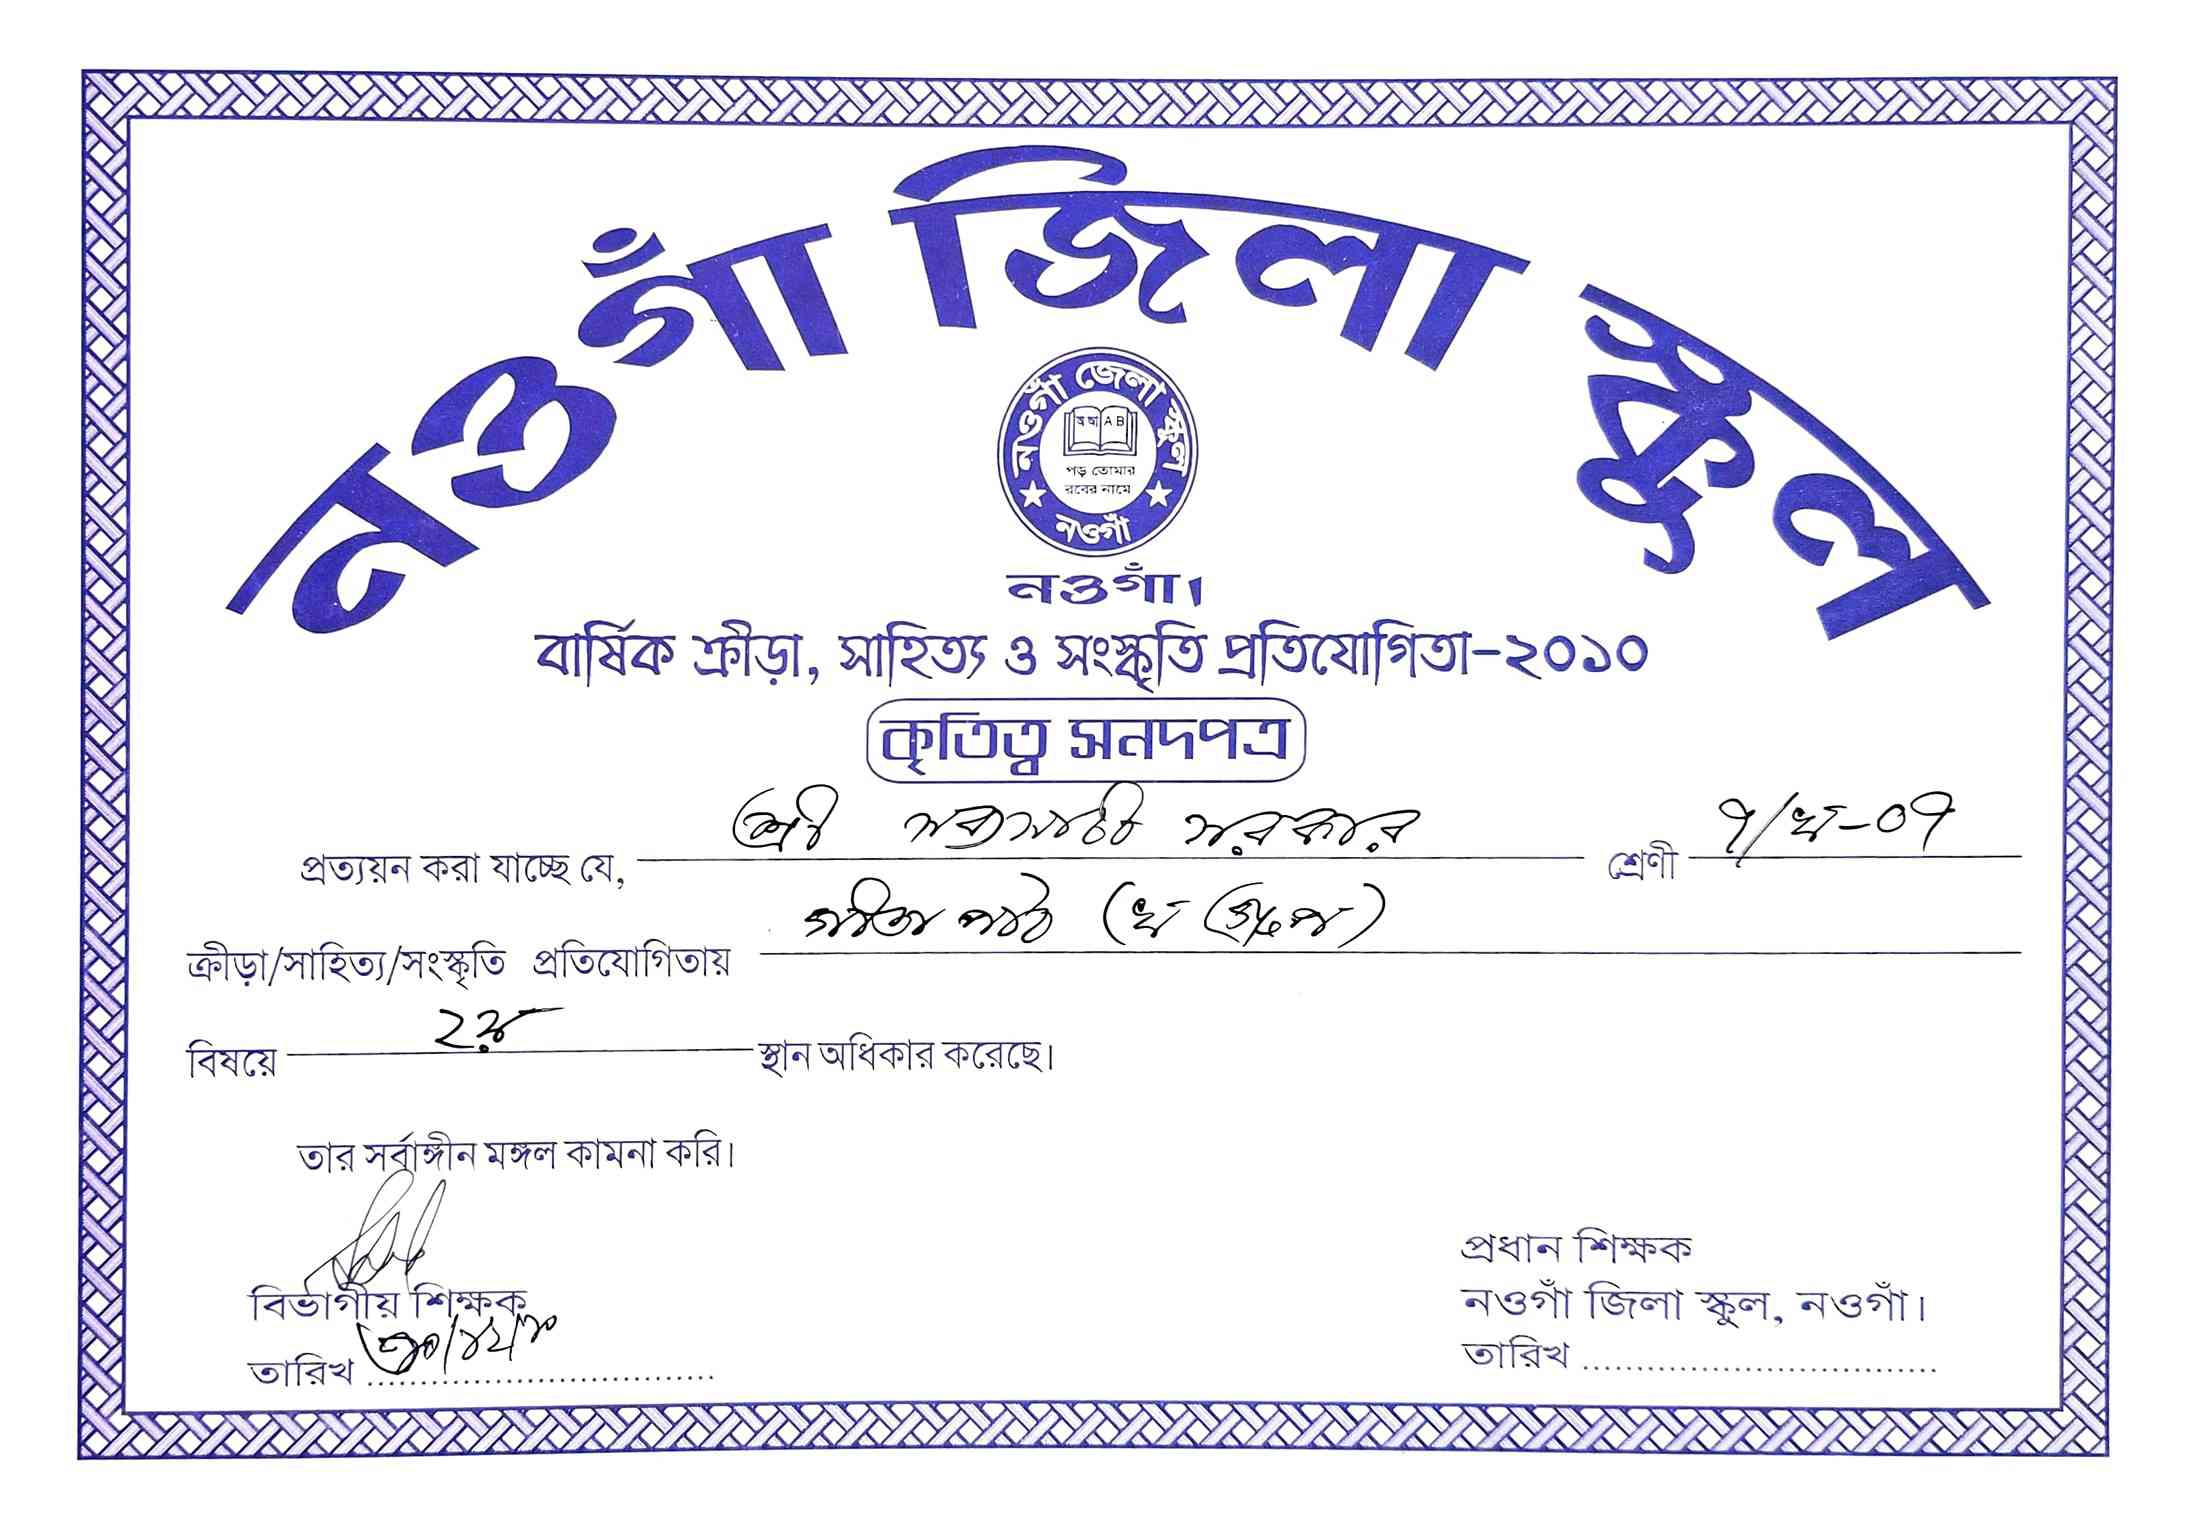 নওগাঁ জিলা স্কুল
নওগাঁ জেলা স্কুল
অ আ A B
পড় তোমার
রবের নামে
নওগাঁ
নওগাঁ।
বার্ষিক ক্রীড়া, সাহিত্য ও সংস্কৃতি প্রতিযোগিতা-২০১০
কৃতিত্ব সনদপত্র
প্রত্যয়ন করা যাচ্ছে যে, শ্রী সব্যসাচী সরকার শ্রেণী ৭/খ-০৭
ক্রীড়া/সাহিত্য/সংস্কৃতি প্রতিযোগিতায় গীতা পাঠ (খ গ্রুপ)
বিষয়ে ২য় স্থান অধিকার করেছে।
তার সর্বাঙ্গীন মঙ্গল কামনা করি।
বিভাগীয় শিক্ষক
তারিখ
প্রধান শিক্ষক
নওগাঁ জিলা স্কুল, নওগাঁ।
তারিখ